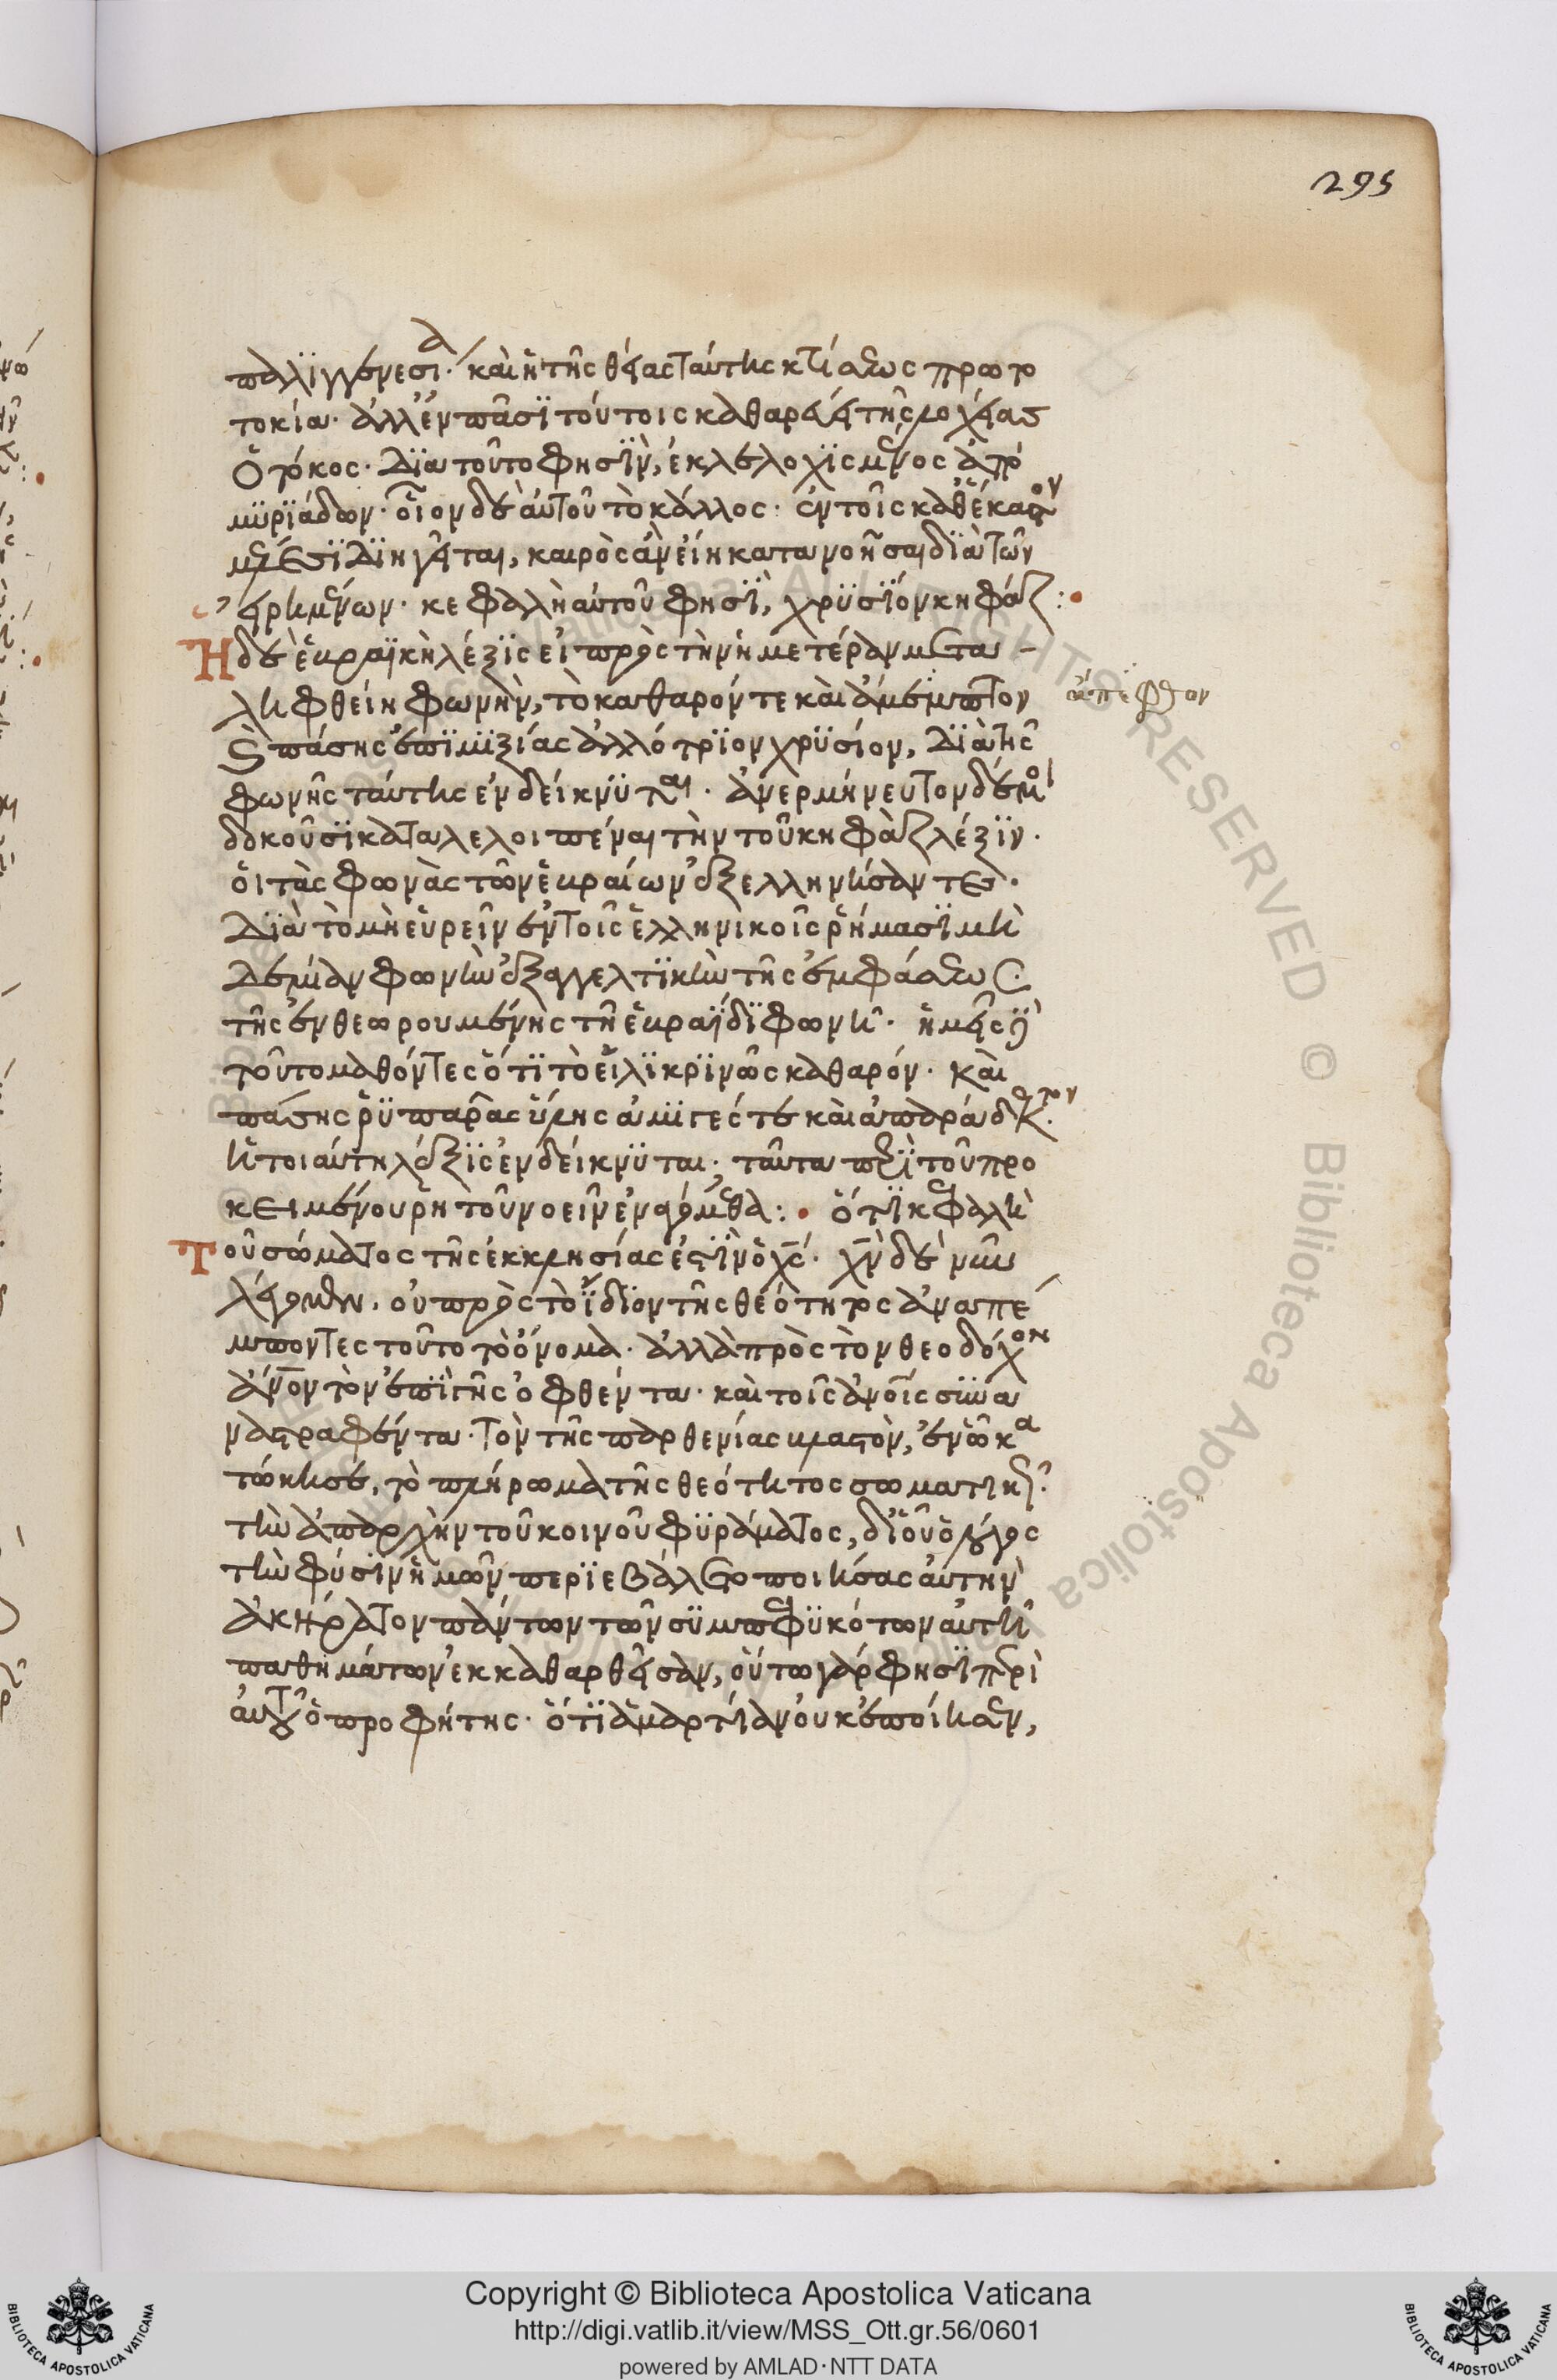 295
παλϊγγενεσία· καὶ ἡ τῆς θείας ταύτης κτίσεως πρωτο
τοκία· ἀλλ' ἐν πᾶσϊ τούτοις καθαρεύει τῆς λοχείας
ὁ τόκος· Διὰ τοῦτο φησὶν, ἐκλελοχϊσμένος ἀπὸ
μϋρϊάδων· οἷον δὲ αὐτοῦ τὸ κάλλος· ἐν τοῖς καθέκαστον
μέλεσϊ Διηγεῖται, καιρὸς ἂν εἴη κατανοῆσαι διὰ τῶν
εἰρημένων· κεφαλὴ αὐτοῦ φησὶ, χρϋσΐον κηφάζ:
Ἡ δὲ ἑβραϊκὴ λέξϊς εἰ πρὸς τὴν ἡμετέραν μετα-
ληφθείη φωνὴν, τὸ καθαρόν τε καὶ ἄμεμπτον ἄπεφθον
καὶ πάσης ἐπϊμϊξίας ἀλλότρϊον χρϋσίον, Διὰ τῆς
φωνῆς ταύτης ἐνδείκνϋται· ἀνερμήνευτον δέ μοι
δοκοῦσϊ καταλελοιπέναι τὴν τοῦ κηφὰζ λέξϊν·
οἱ τὰς φωνὰς τῶν ἑβραίων ἐξελληνήσαντες·
Διὰ τὸ μὴ εὑρεῖν ἐν τοῖς ἑλληνικοῖς ῥήμασϊ μὴ
Δεμίαν φωνὴν ἐξαγγελτϊκὴν τῆς ἐμφάσεως
τῆς ἐνθεωρουμένης τῇ ἑβραΐδϊ φωνῇ· ἡμεῖς δὲ
τοῦτο μαθόντες ὅτϊ τὸ εἱλϊκρϊνῶς καθαρόν· καὶ
πάσης ῥϋπαρᾶς ὕλης ἀμϊγές τε καὶ ἀπαράδεκτον·
ἡ τοιαύτη λέξϊς ἐνδείκνϋται· ταῦτα περὶ τοῦ προ
κειμένου ῥητοῦ νοεῖν ἐναγόμεθα: ὅτϊ κεφαλὴ
Τοῦ σώματος τῆς ἐκκλησίας ἐστὶν ὁ χς· χν δὲ νῦν
λέγομεν, οὐ πρὸς τὸ ἴδϊον τῆς θεότητος ἀναπέ
μποντες τοῦτο τὸ ὄνομα· ἀλλὰ πρὸς τὸν θεοδόχον
ἄνον τὸν ἐπὶ γῆς ὀφθέντα· καὶ τοῖς ἀνοις σϋνα
ναστραφέντα· τὸν τῆς παρθενίας βλαστὸν, ἐν ᾧ κα
τώκησε, τὸ πλήρωμα τῆς θεότητος σωματικῶς·
τὴν ἀπαρχὴν τοῦ κοινοῦ φϋράματος, δι' οὗ ὁ λόγος
τὴν φύσϊν ἡμῶν περϊεβάλετο ποιήσας αὐτὴν
ἀκήρατον πάντων τῶν σϋμπεφϋκότων αὐτῇ
παθημάτων ἐκκαθαρθεῖσαν, οὕτω γάρ φησϊ περὶ
αὐτοῦ ὁ προφήτης· ὅτϊ ἁμαρτίαν οὐκ ἐποίησεν,
Copyright © Biblioteca Apostolica Vaticana
http://digi.vatlib.it/view/MSS_Ott.gr.56/0601
powered by AMLAD·NTT DATA